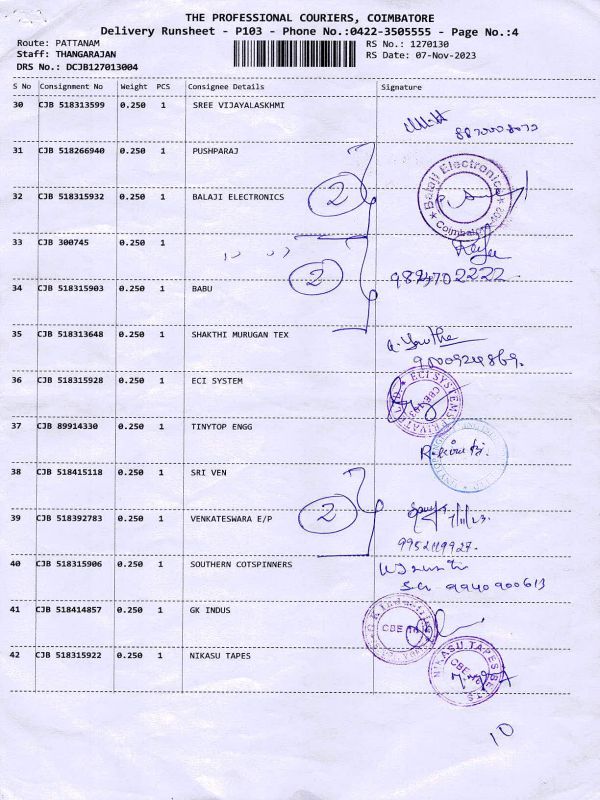 THE PROFESSIONAL COURIERS, COIMBATORE
Delivery Runsheet - P103 - Phone No.:0422-3505555 - Page No.:4
Route: PATTANAM RS No.: 1270130
Staff: THANGARAJAN RS Date: 07-Nov-2023
DRS No.: DCJB127013004
S No Consignment No Weight PCS Consignee Details Signature
30 CJB 518313599 0.250 1 SREE VIJAYALASKHMI
31 CJB 518266940 0.250 1 PUSHPARAJ
32 CJB 518315932 0.250 1 BALAJI ELECTRONICS
2
Balaji Electronics
Coimbatore
33 CJB 300745 0.250 1
2
34 CJB 518315903 0.250 1 BABU
35 CJB 518313648 0.250 1 SHAKTHI MURUGAN TEX
36 CJB 518315928 0.250 1 ECI SYSTEM
ECI SYSTEMS PRIVATE LTD.
37 CJB 89914330 0.250 1 TINYTOP ENGG
38 CJB 518415118 0.250 1 SRI VEN
39 CJB 518392783 0.250 1 VENKATESWARA E/P
2
7/11/23
9952119927.
40 CJB 518315906 0.250 1 SOUTHERN COTSPINNERS
9940900613
41 CJB 518414857 0.250 1 GK INDUS
CBE
42 CJB 518315922 0.250 1 NIKASU TAPES
NIKASU TAPES
CBE
10